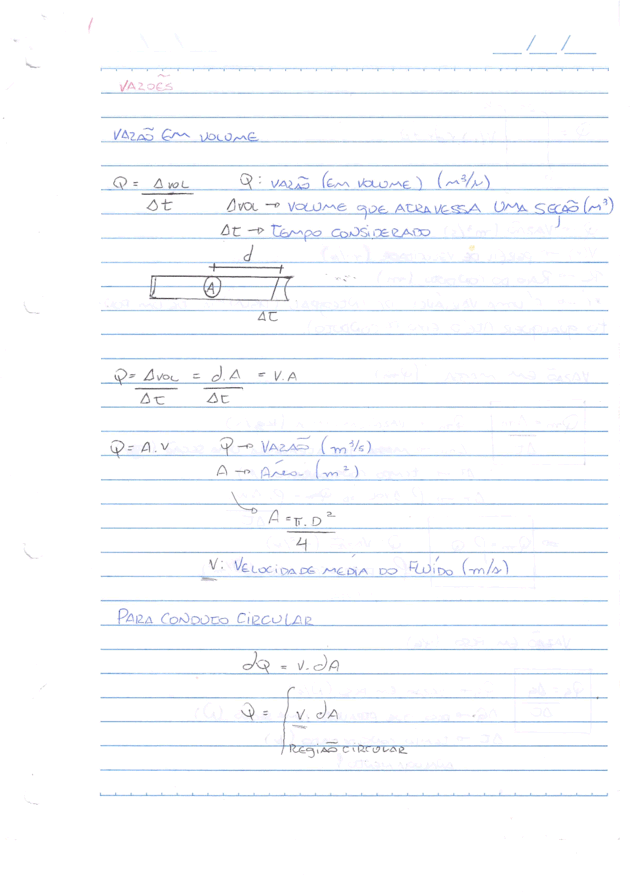 1
__/__/__
VAZÕES
VAZÃO EM VOLUME
Q = Δvol / Δt    Q: VAZÃO (EM VOLUME) (m³/s)
Δvol → VOLUME QUE ATRAVESSA UMA SEÇÃO (m³)
Δt → TEMPO CONSIDERADO
d
A
Δt
Q = Δvol / Δt = d.A / Δt = V.A
Q = A.V    Q → VAZÃO (m³/s)
A → Área (m²)
A = π.D² / 4
V: VELOCIDADE MÉDIA DO FLUÍDO (m/s)
PARA CONDUTO CIRCULAR
dQ = V.dA
Q = ∫ V.dA
REGIÃO CIRCULAR